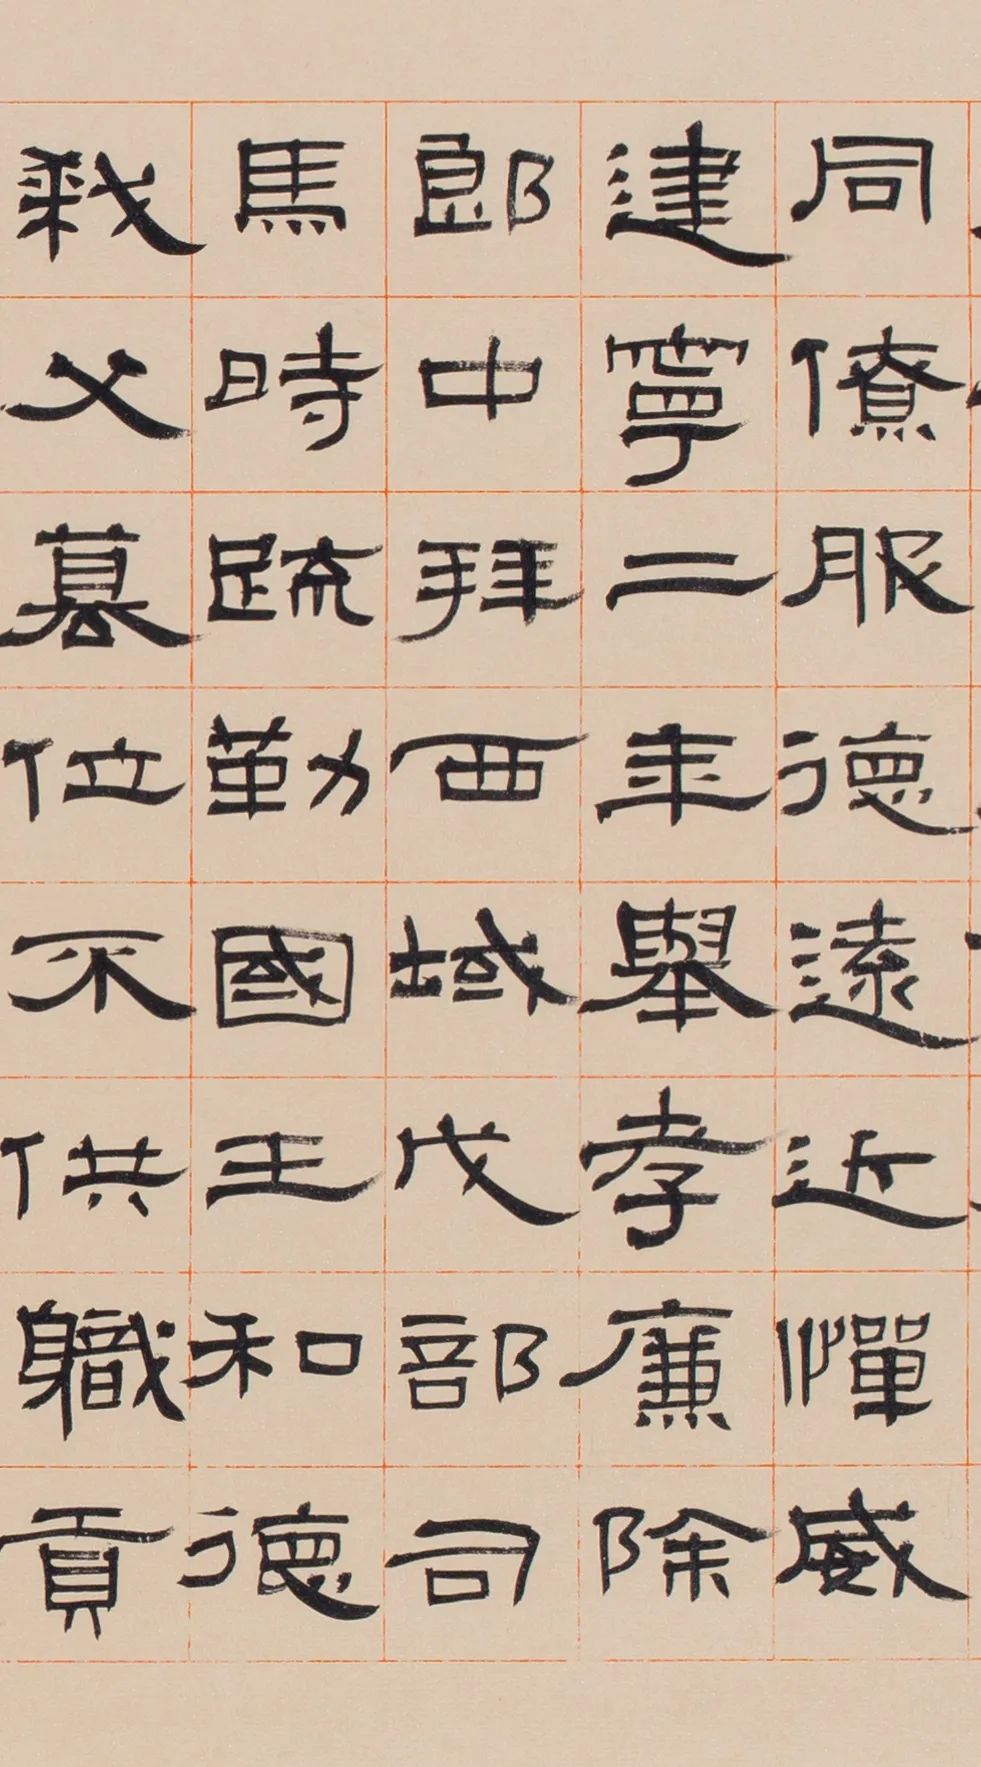 同僚服德遠近憚威
建寧二年舉孝廉除
郎中拜西域戊部司
馬時疏勒國王和德
弒父篡位不供職貢